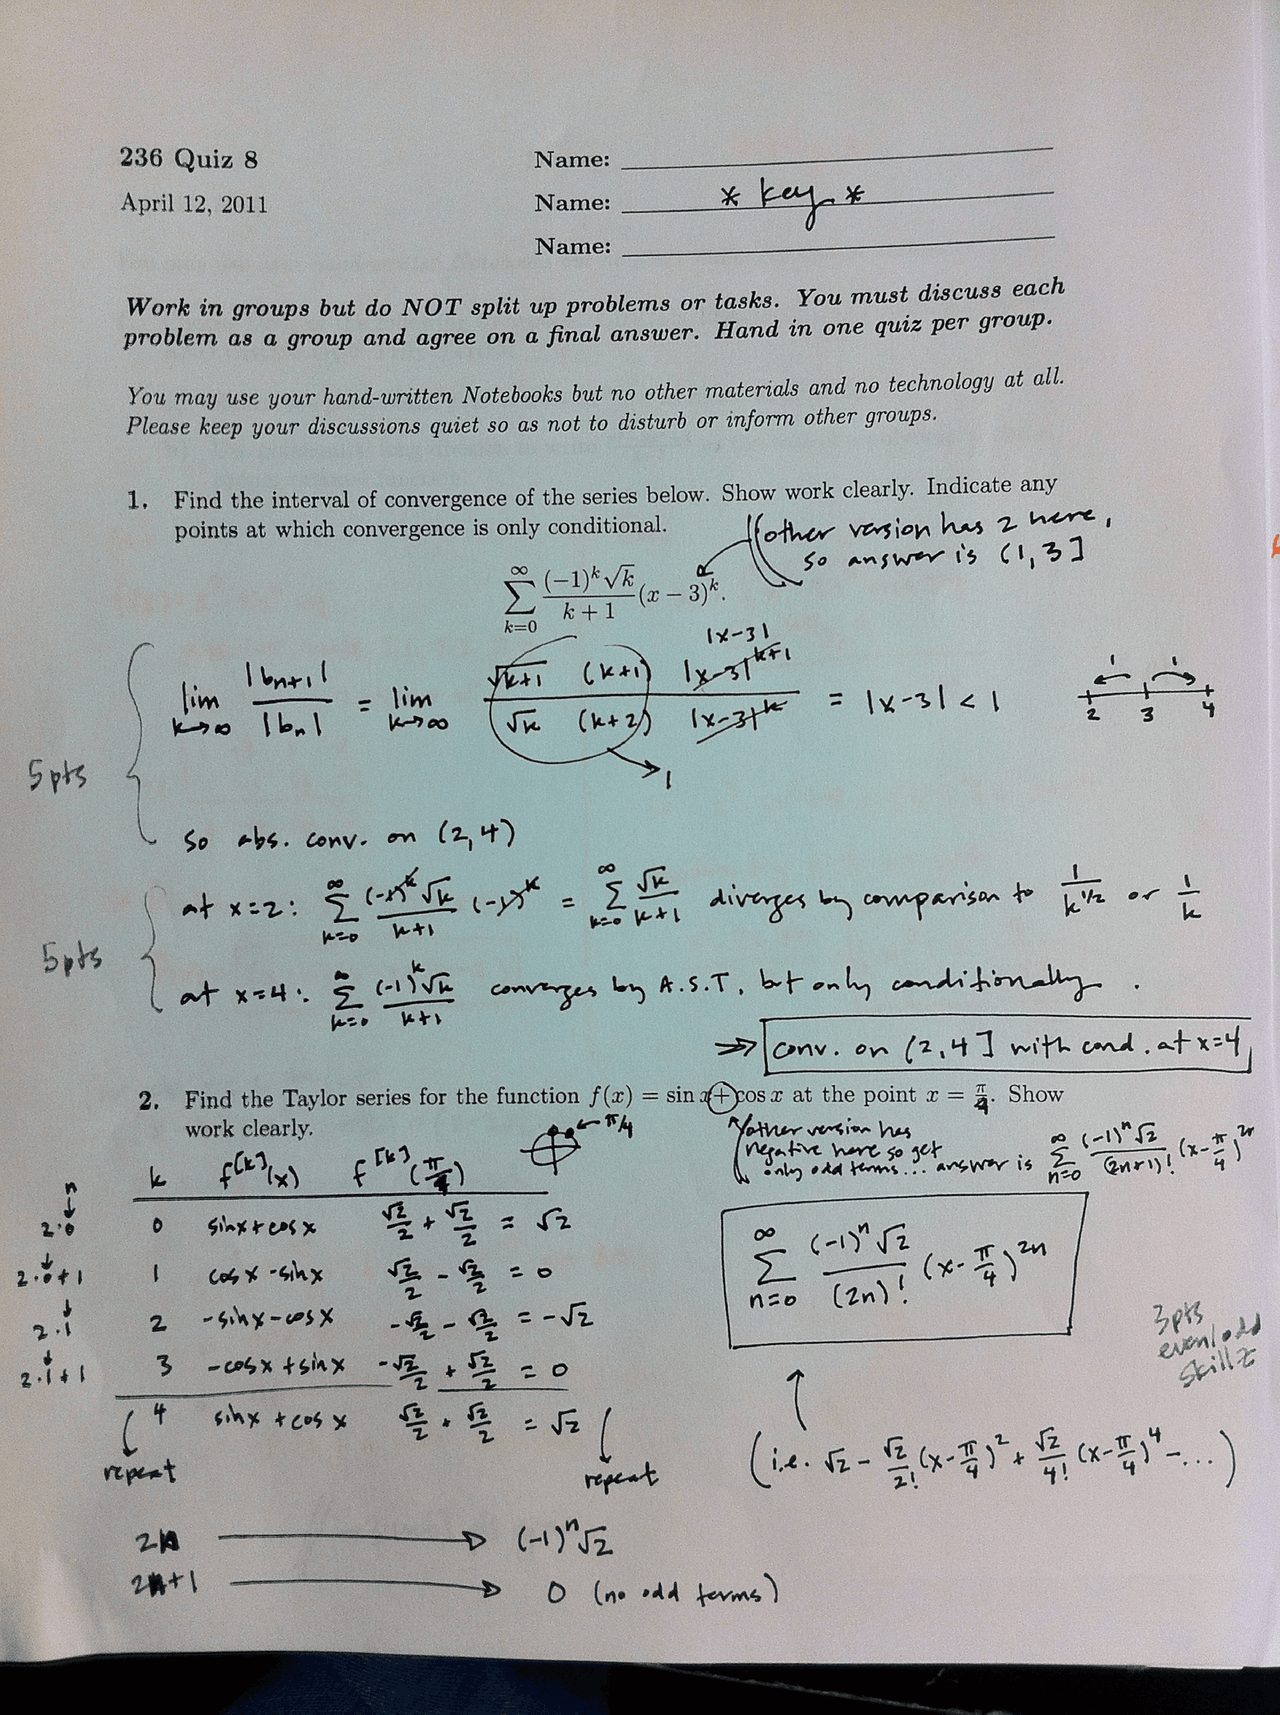 236 Quiz 8
April 12, 2011
Name:
Name: * key *
Name:
Work in groups but do NOT split up problems or tasks. You must discuss each
problem as a group and agree on a final answer. Hand in one quiz per group.
You may use your hand-written Notebooks but no other materials and no technology at all.
Please keep your discussions quiet so as not to disturb or inform other groups.
1. Find the interval of convergence of the series below. Show work clearly. Indicate any
points at which convergence is only conditional.
other version has 2 here,
so answer is (1, 3]
∞ ∑ k=0 (-1)^k √k / (k + 1) (x − 3)^k.
5pts
lim k→∞ |b_{n+1}| / |b_n| = lim k→∞ √(k+1) (k+1) |x-3|^{k+1} / √k (k+2) |x-3|^k = |x-3| < 1
|x-3|
→ 1
1 1
2 3 4
so abs. conv. on (2,4)
5pts
at x=2: ∞ ∑ k=0 (-1)^k √k / (k+1) (-1)^k = ∞ ∑ k=0 √k / (k+1) diverges by comparison to 1/k^{1/2} or 1/k
at x=4: ∞ ∑ k=0 (-1)^k √k / (k+1) converges by A.S.T, but only conditionally.
⇒ conv. on (2,4] with cond. at x=4
2. Find the Taylor series for the function f(x) = sin x + cos x at the point x = π/4. Show
work clearly.
← π/4
other version has
negative here so get
only odd terms... answer is ∞ ∑ n=0 (-1)^n √2 / (2n+1)! (x-π/4)^{2n}
n k f^[k](x) f^[k](π/4)
2·0 0 sinx+cosx √2/2 + √2/2 = √2
2·0+1 1 cosx-sinx √2/2 - √2/2 = 0
2·1 2 -sinx-cosx -√2/2 - √2/2 = -√2
2·1+1 3 -cosx+sinx -√2/2 + √2/2 = 0
4 sinx+cosx √2/2 + √2/2 = √2
repeat repeat
∞ ∑ n=0 (-1)^n √2 / (2n)! (x-π/4)^{2n}
3pts
even/odd
skillz
(i.e. √2 - √2/2! (x-π/4)^2 + √2/4! (x-π/4)^4 -...)
2n → (-1)^n √2
2n+1 → 0 (no odd terms)